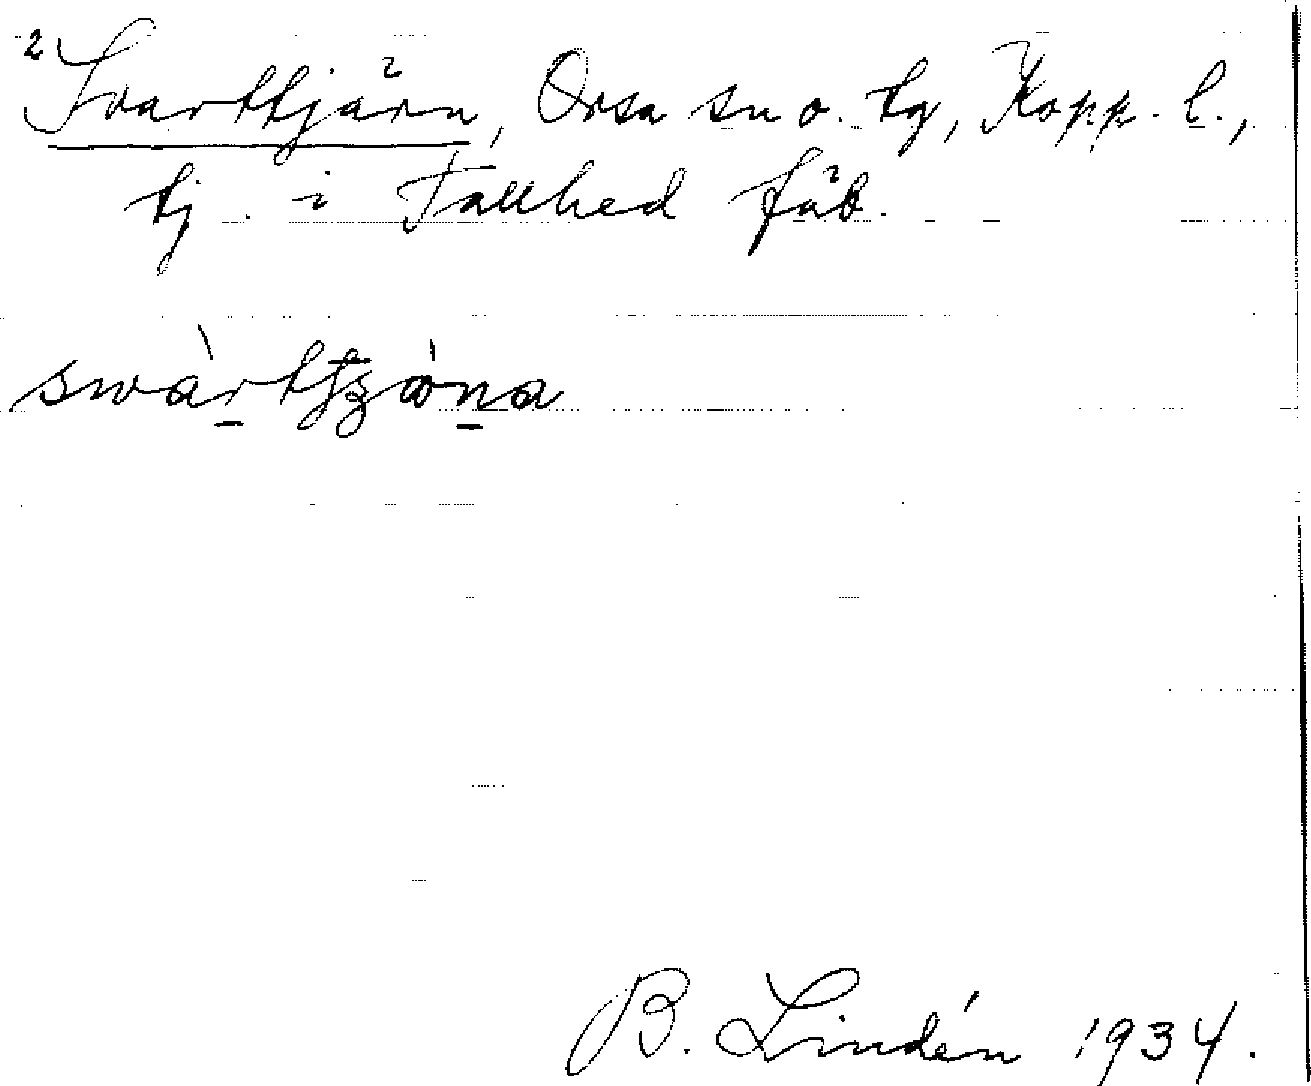 2 Svarttjärn, Orsa sn o. tg, Kopp. l.,
tj. i Tallhed fäb.
swàrttʒǿna
B. Lindén 1934.